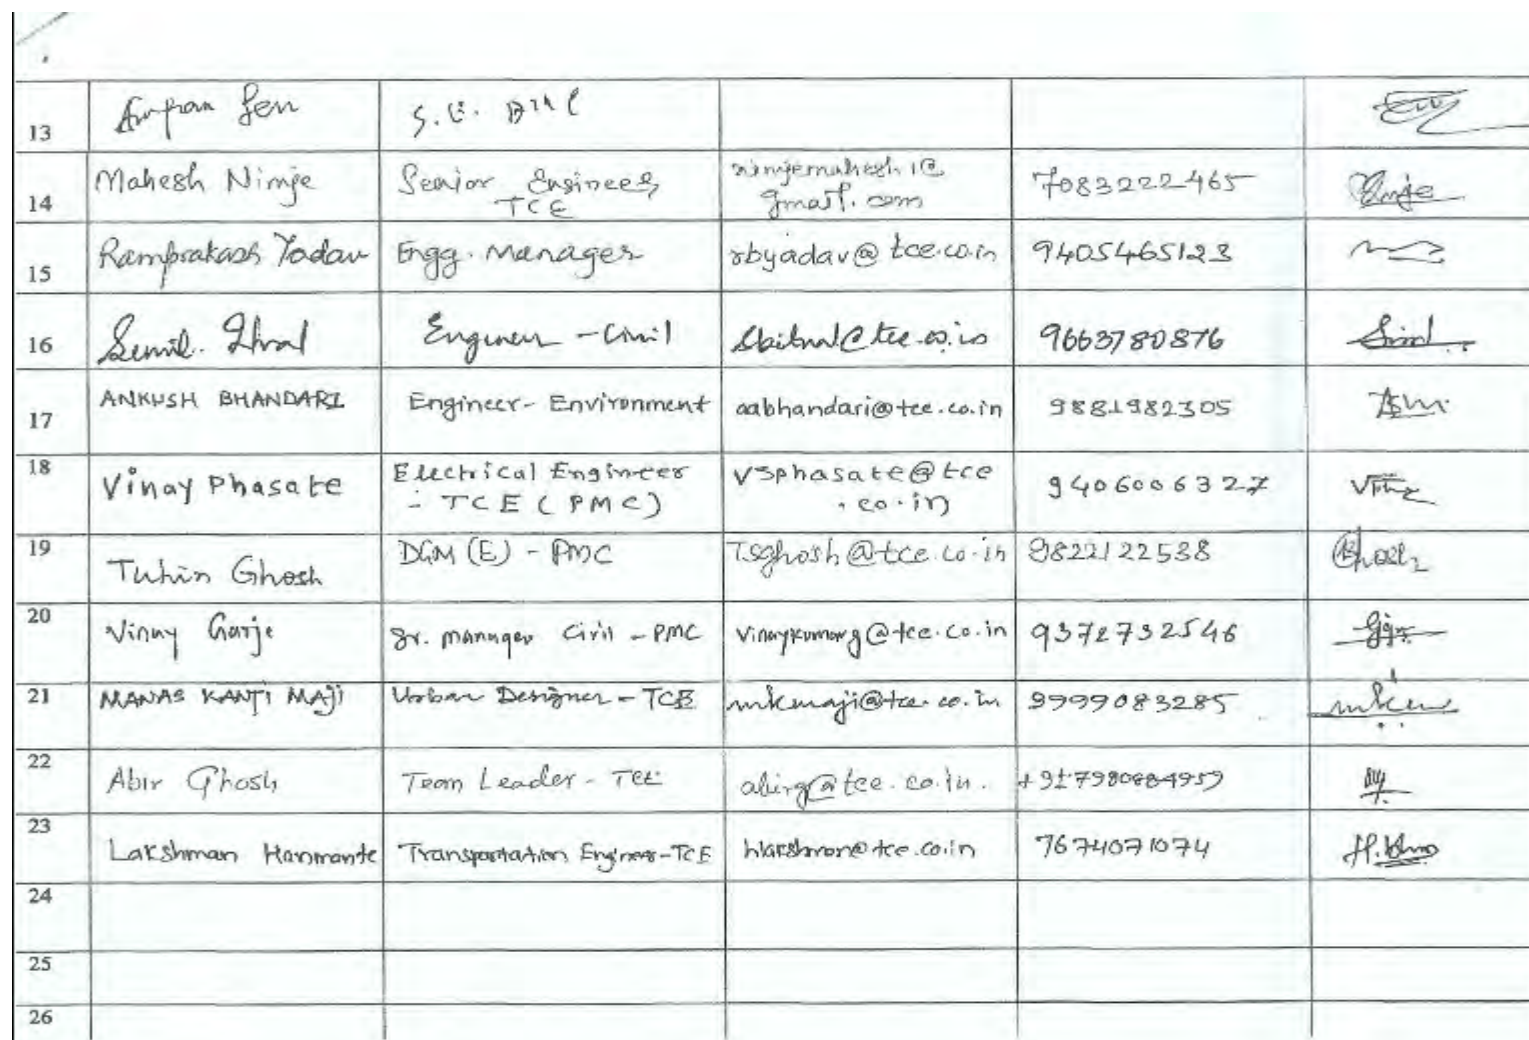 13
S.E.
14
Mahesh Nimje
Senior Engineer,
TCE
nimjemahesh1@
gmail.com
7083222465
15
Ramprakash Yadav
Engg. Manager
rbyadav@tce.co.in
9405465123
16
Engineer - Civil
9663780876
17
ANKUSH BHANDARI
Engineer- Environment
aabhandari@tce.co.in
9881982305
18
Vinay Phasate
Electrical Engineer
- TCE (PMC)
vsphasate@tce
.co.in
9406006327
19
Tuhin Ghosh
DGM (E) - PMC
Tsghosh@tce.co.in
9822122538
20
Vinay Garje
Sr. manager Civil - PMC
vinaykumarg@tce.co.in
9372732546
21
MANAS KANTI MAJI
Urban Designer - TCE
mkmaji@tce.co.in
9999083285
22
Abir Ghosh
Team Leader - TCE
abirg@tce.co.in.
23
Lakshman Hanmante
Transportation Engineer-TCE
hlakshman@tce.co.in
7674071074
24
25
26